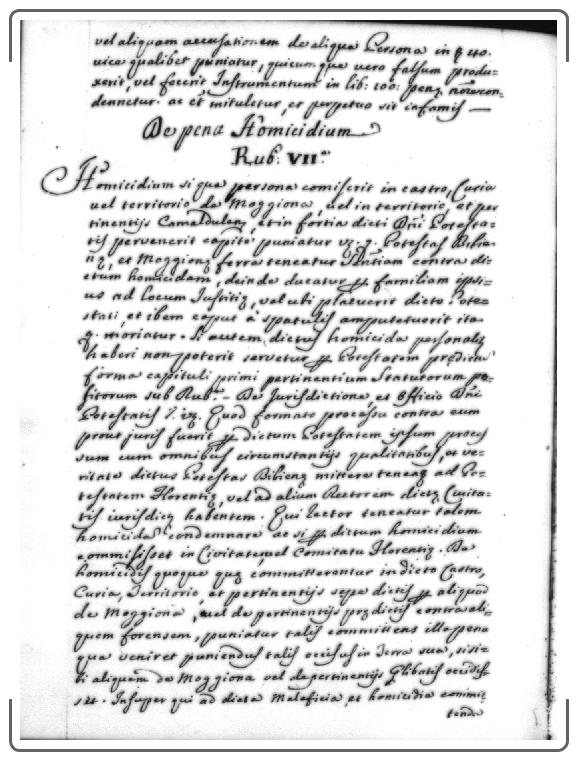 vel aliquam accusationem de aliqua Persona in
vice qualibet puniatur, quicumque vero falsum produ-
xerit, vel fecerit Instrumentum in lib: 100: penę
dennetur. ac et mituletur, et perpetuo sit infamis —
De pena Homicidium
Rub: VII.ª
Homicidium si qua persona comiserit in castro, Curia
vel territorio de Moggiona, vel in territorio, et per
tinentijs Camaldulen, et in fortia dicti Dñi Potesta-
tis pervenerit capite puniatur vz. q. Potestas Bibie-
nę, et Moggionę ferre teneatur Sñtiam contra di-
ctum homicidam, deinde ducatur familiam ipsi-
us ad locum Iustitię, vel ubi placuerit dicto Pote-
stati, et ibem caput à spatulis amputetuerit ita
q. moriatur. Si autem dictus homicida personalr
haberi non poterit servetur Potestatem
forma capituli primi pertinentium Statutorum po-
sitorum sub Rub.ª - De Jurisdictione et Officio Dñi
Potestatis 7. vz. Quod formato processu contra eum
prout juris fuerit dictum Potestatem ipsum proces
sum cum omnibus circumstantijs qualitatibus, et ve-
ritate dictus Potestas Bibienę mittere teneaę ad Po-
testatem Florentię, vel ad alium Rectorem dictę Civita-
tis iurisdicę habentem. Qui Rector teneatur talem
homicidã condemnare ac si dictum homicidium
commisisset in Civitate, vel Comitatu Florentię. De
homicidijs quoque quę committerentur in dicto Castro,
Curia, Territorio, et pertinentijs sepe dictis aliquod
de Moggiona, vel de pertinentijs prędictis contra ali-
quem forensem, puniatur talis committens illa pena
qua veniret puniendus talis occisus in Terra sua, si si-
bi aliquem de Moggiona vel de pertinentijs occidis-
set. Insuper qui ad dicta Maleficia, et homicidia commit-
tenda